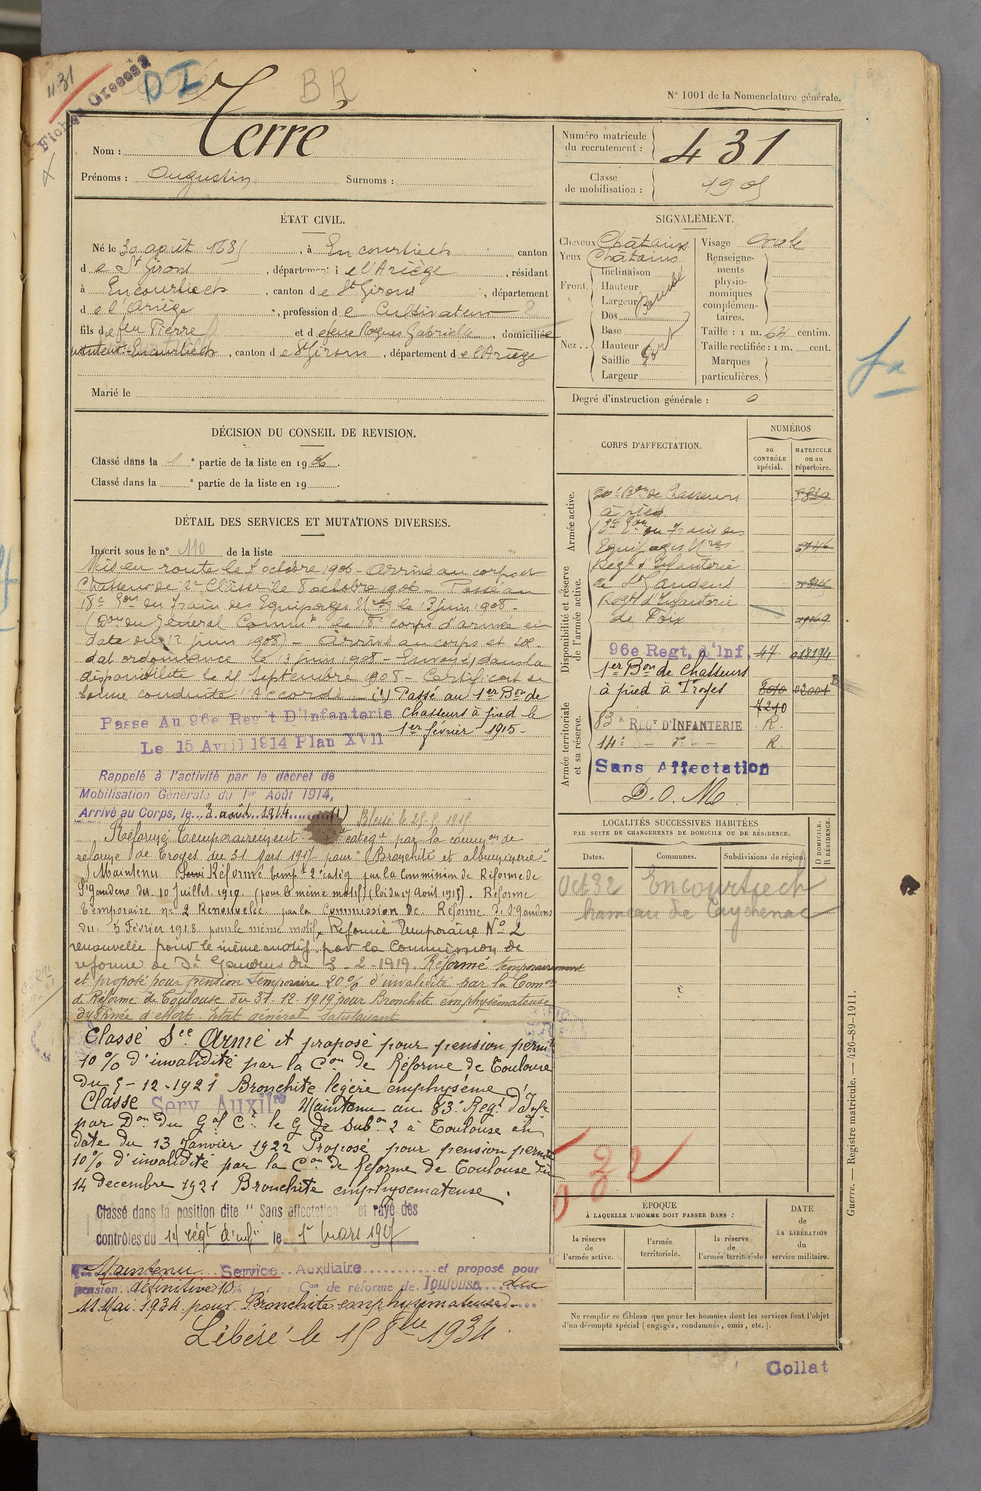 431
Fiches Greesés
DI
BR
N° 1001 de la Nomenclature générale.
Nom : Terré
Prénoms : Augustin Surnoms :
Numéro matricule du recrutement : 431
Classe de mobilisation : 1905
ÉTAT CIVIL.
Né le 30 août 1885, à Encourtiech canton
de St Girons, département de l'Ariège, résidant
à Encourtiech, canton de St Girons, département
de l'Ariège, profession de Cultivateur
fils de feu Pierre et de feue Rogues Gabrielle, domiciliés
Encourtiech, canton de St Girons, département de l'Ariège
Marié le
SIGNALEMENT.
Cheveux Châtains
Yeux Châtains
Front. Inclinaison
Hauteur
Largeur
Nez. Dos
Base
Hauteur
Saillie
Largeur
Visage Ovale
Renseignements physionomiques complémentaires.
Taille : 1 m. 64 centim.
Taille rectifiée : 1 m. cent.
Marques particulières.
Degré d'instruction générale : 0
DÉCISION DU CONSEIL DE REVISION.
Classé dans la 1e partie de la liste en 1906.
Classé dans la e partie de la liste en 19 .
DÉTAIL DES SERVICES ET MUTATIONS DIVERSES.
Inscrit sous le n° 110 de la liste
Mis en route le 8 octobre 1906 - Arrivé au corps et
Chasseur de 2e Classe le 8 octobre 1906 - Passé au
18e Eon du Train des Equipages Mres le 13 juin 1908 -
(Don du Général Commt le 18e corps d'armée en
date du 12 juin 1908) - Arrivé au corps et sol
dat ordonnance le 13 juin 1908 - Envoyé dans la
disponibilité le 25 Septembre 1908 - Certificat de
bonne conduite "Accordé" (1) Passé au 1er Bon de
Chasseurs à pied le
1er février 1915 -
Passe Au 96e Reg't D'Infanterie
Le 15 Avril 1914 Plan XVII
Rappelé à l'activité par le décret de
Mobilisation Générale du 1er Août 1914,
Arrivé au Corps, le 3 août 1914 (1) Blessé le
Réformé Temporairement catégie par la common de
réforme de Troyes du 31 Mars 1917 pour "Bronchite et albuminurie"
Maintenu Réformé tempre 2e catég. par la Commission de Réforme de
St gaudens du 10 juillet 1917. (pour le même motif) Réforme
Temporaire n° 2 Renouvelée par la Commission de Réforme de St Gaudens
du 5 Février 1918 pour le même motif. Réforme Temporaire N° 2
renouvelée pour le même motif par la Commission de
réforme de St Gaudens du 3-2-1919. Réformé temporairement
et proposé pour pension temporaire 20% d'invalidité par la Comon
de Réforme de Toulouse du 31-12-1919 pour Bronchite emphysémateuse
dyspnée d'effort. Etat général satisfaisant
Classé Sce Armé et proposé pour pension permte
10% d'invalidité par la Con de Réforme de Toulouse
du 5-12-1921 Bronchite légère emphysème
Classé Serv. Auxil.re Maintenu au 83e Regt d'Infie
par Don du Gal Ct le G de Subon 2 à Toulouse en
date du 13 Janvier 1922 Proposé pour pension permte
10% d'invalidité par la Con de Réforme de Toulouse du
14 decembre 1921 Bronchite emphysemateuse.
Classé dans la position dite "Sans affectation" et rayé des
contrôles du 14 régt d'infie le 1er Mars 1927
Maintenu Service Auxiliaire et proposé pour
pension définitive 10% Con de réforme de Toulouse du
11 Mai 1934 pour Bronchite emphysemateuse
Libéré le 15 8bre 1934
CORPS D'AFFECTATION.
NUMÉROS
au CONTRÔLE spécial.
MATRICULE ou au répertoire.
Armée active.
Bon de Chasseurs
à pied
18e Eon du Train des
Equipages Mres
Disponibilité et réserve de l'armée active.
Regt d'Infanterie
de St Gaudens
Regt d'Infanterie
de Foix
96e Regt. d'Inf. 47
1er Bon de Chasseurs
à pied à Troyes
Armée territoriale et sa réserve.
83e REGt D'INFANTERIE R
14e - d° - R
Sans Affectation
D.O.M
fa
LOCALITÉS SUCCESSIVES HABITÉES
PAR SUITE DE CHANGEMENTS DE DOMICILE OU DE RÉSIDENCE.
Dates. Communes. Subdivisions de région. D DOMICILE. R RÉSIDENCE.
Oct 32 Encourtiech
hameau de Caychenac
32
ÉPOQUE
À LAQUELLE L'HOMME DOIT PASSER DANS :
la réserve de l'armée active.
l'armée territoriale.
la réserve de l'armée territoriale
DATE de LA LIBÉRATION du service militaire.
Ne remplir ce tableau que pour les hommes dont les services font l'objet
d'un décompte spécial (engagés, condamnés, omis, etc.).
Collat
Guerre. — Registre matricule. — 426-89-1911.